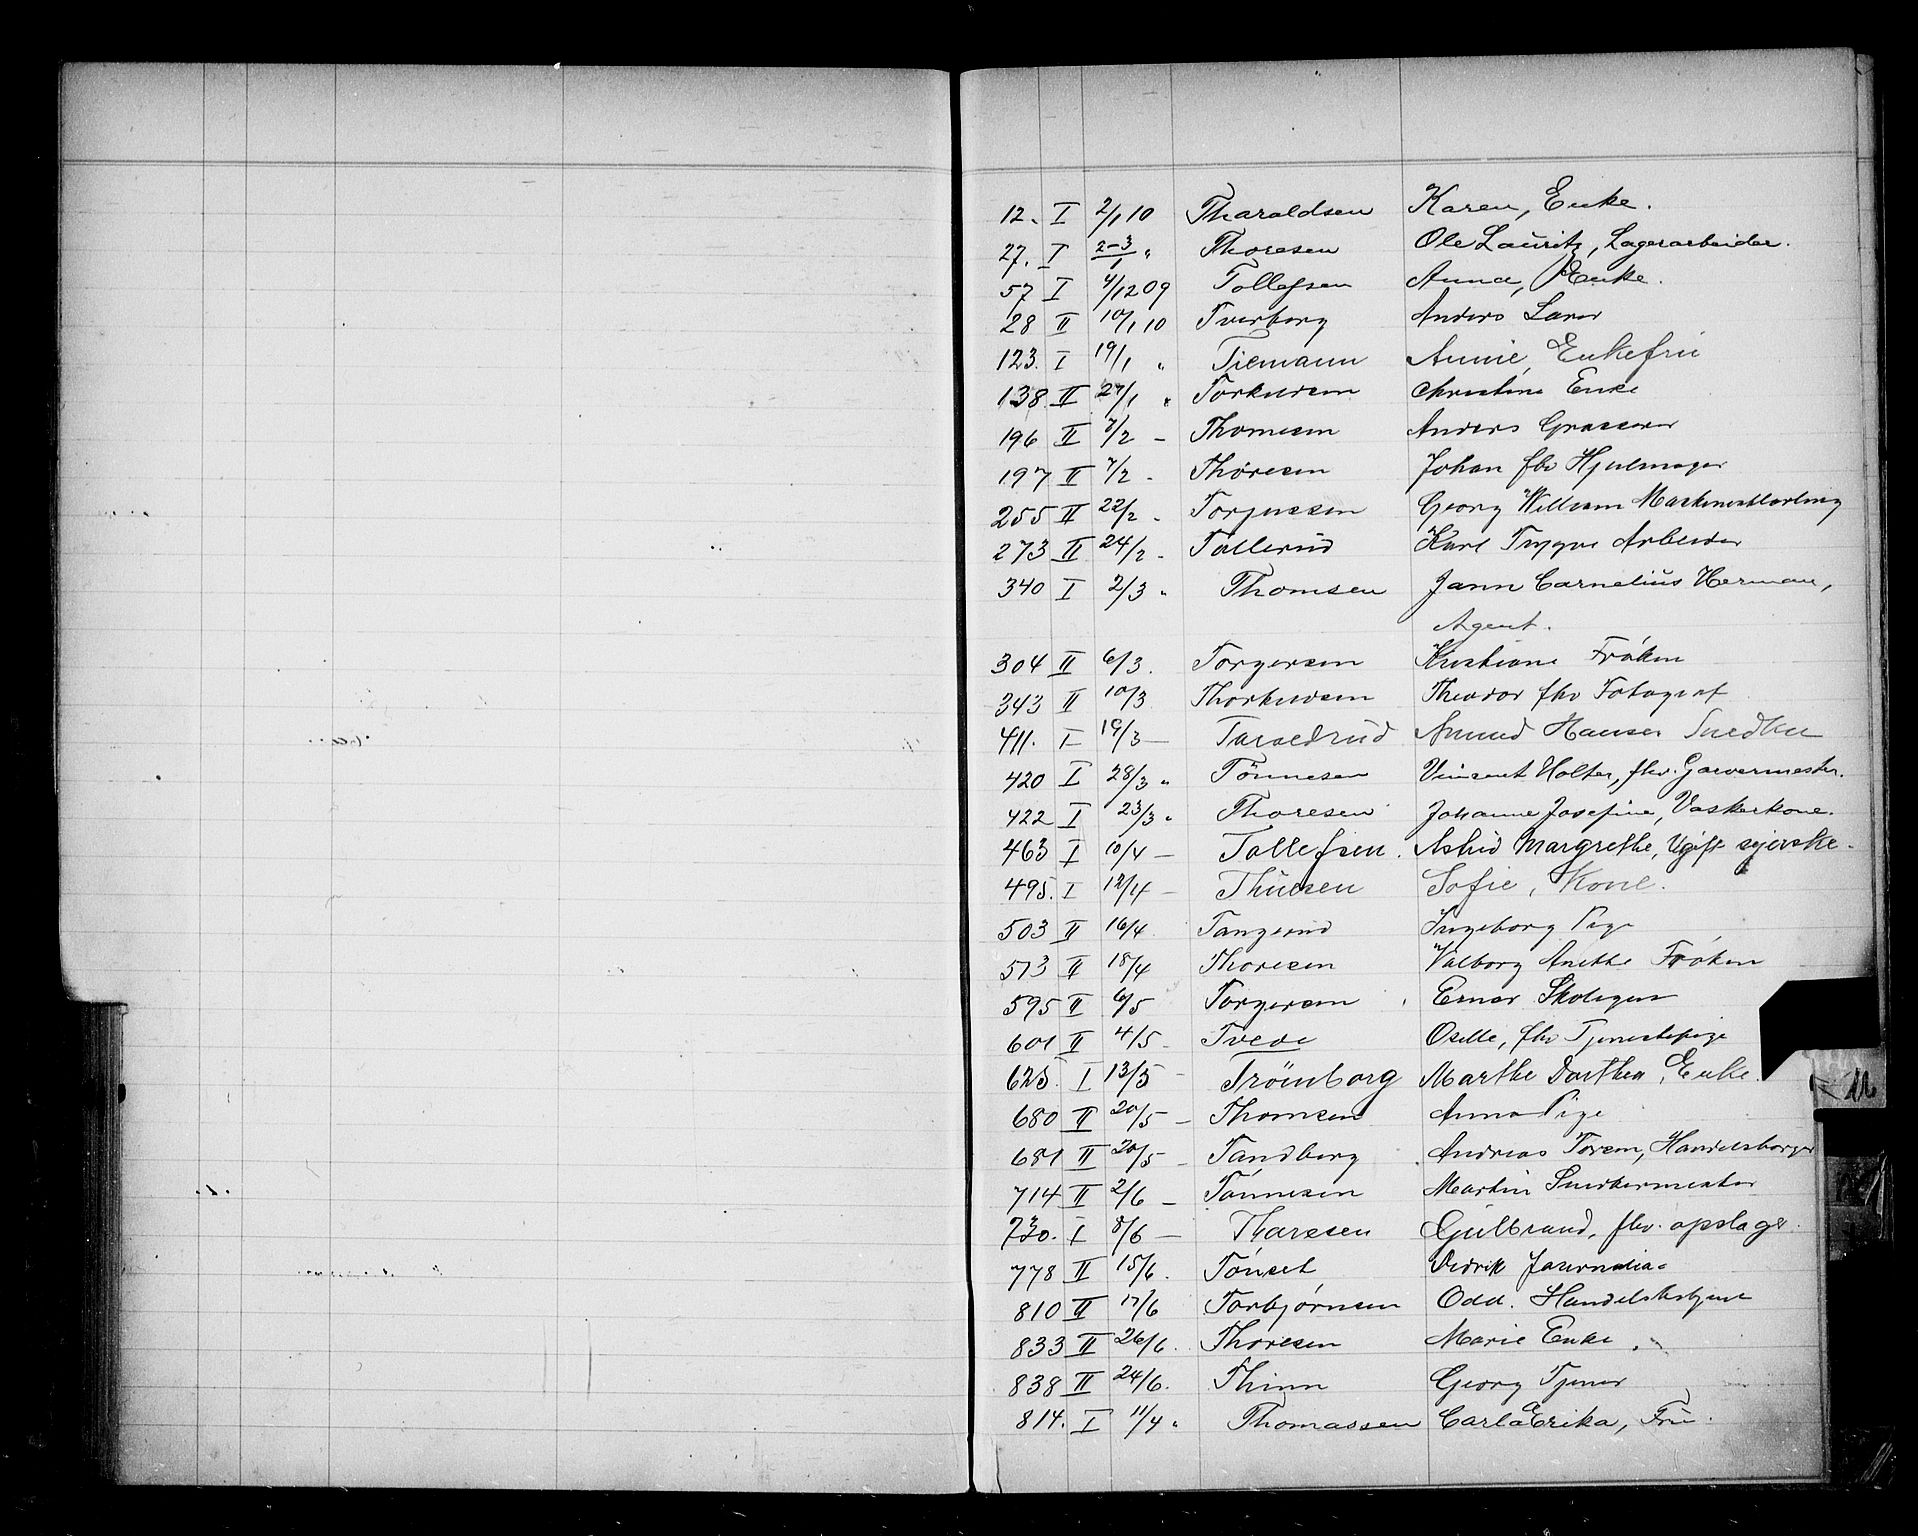 12. I 2/1 10 Tharaldsen Karen, Enke.
27. I 2-3/1 " Thoresen Ole Lauritz, Lagerarbeider.
57 I 4/12 09 Tollefsen Anna, Enke.
28 II 10/1 10 Tverborg Anders Lærer
123. I 19/1 " Tiemann Annie, Enkefru
138 II 27/1 " Torkildsen Christine Enke
196 II 7/2 - Thomesen Anders Grosserer
197 II 7/2 - Thoresen Johan fhv Hjulmager
255 II 22/2 - Torjussen Georg William
273 II 24/2 - Tollerud Karl Trygve Arbeider
340 I 2/3 " Thomsen Jann Cornelius Herman,
Agent.
304 II 6/3. Torgersen Kristiane Frøken
343 II 10/3 Thorkildsen Theodor fhv Fotograf
411. I 19/3 - Amund Hansen Snedker
420 I 28/3 " Tönnesen Vincent Holter, fhv. Garvermester.
422 I 23/3 " Thoresen Johanne Josefine, Vaskerkone.
463 I 10/4 - Tollefsen. Astrid Margrethe, Ugift syerske.
495. I 12/4 - Thuesen Sofie, Kone.
503 II 16/4 Tangerud Ingeborg Pige
513 II 18/4 Thoresen Valborg Anethe Frøken
595 II 6/5 Torgersen Einar Skolegut
601 II 4/5 - Tvede Oselle, fhv Tjenestepige
625. I 13/5 - Trömborg Marthe Dorthea, Enke.
680 II 20/5 - Thomsen Anna Pige
681 II 20/5 - Tandberg Andreas Toresen, Handelsborger
714 II 2/6 - Tønnesen Martin Snedkermester
730. I 8/6 - Thoresen Gulbrand, fhv. opslager.
778 II 15/6. Tønset Didrik Journalist
810 II 17/6 Torbjørnsen Odd. Handelsbetjent
833 II 26/6. Thoresen Marie Enke.
838 II 24/6. Thinn Georg Tjener
814. I 11/4 " Thomassen Carla Erika, Fru.